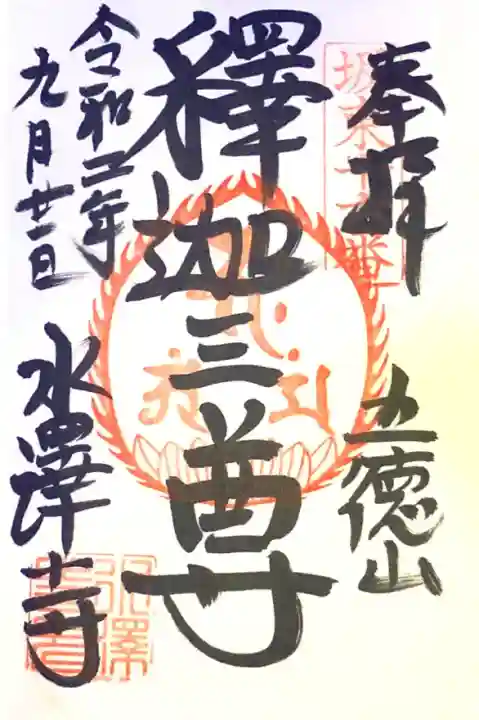 奉拝
坂東十六番
五徳山
釋迦三尊
令和二年
九月廿一日
水澤寺